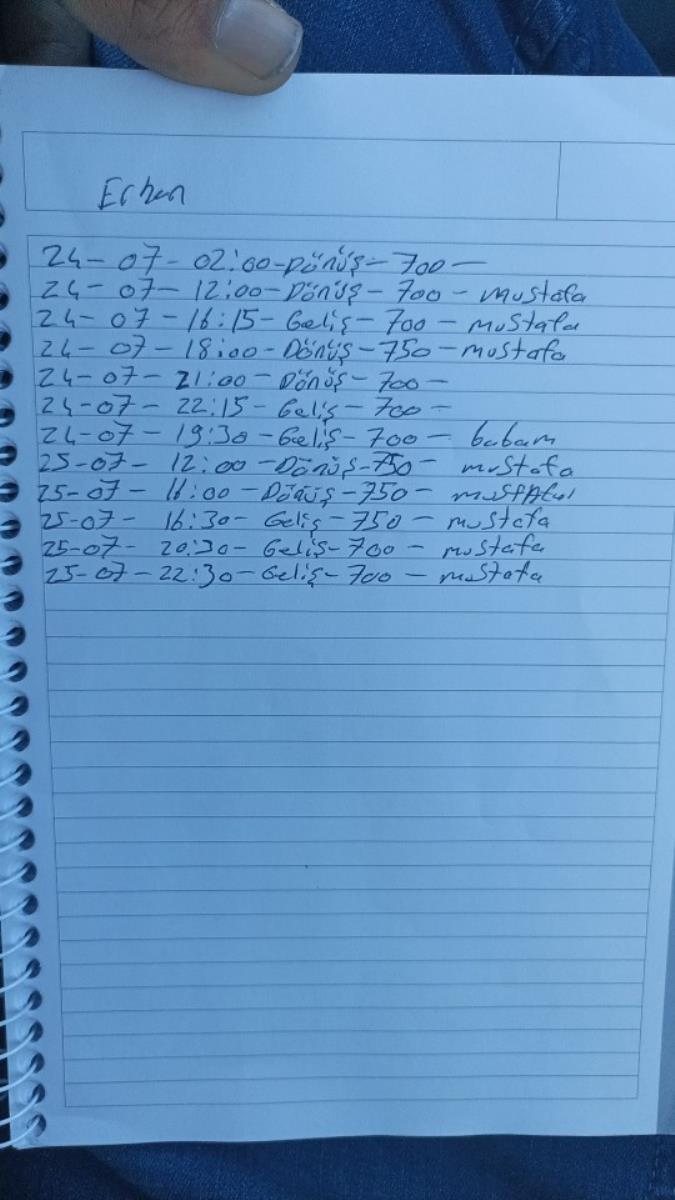 Erhan
24-07-02:00-Dönüş-700-
24-07-12:00-Dönüş-700-mustafa
24-07-16:15-Geliş-700-mustafa
24-07-18:00-Dönüş-750-mustafa
24-07-21:00-Dönüş-700-
24-07-22:15-Geliş-700-
24-07-19:30-Geliş-700-babam
25-07-12:00-Dönüş-750-mustafa
25-07-16:00-Dönüş-750-
25-07-16:30-Geliş-750-mustafa
25-07-20:30-Geliş-700-mustafa
25-07-22:30-Geliş-700-mustafa